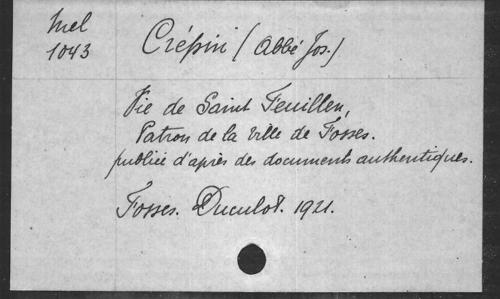 Mel
1043
Crépin (Abbé Jos.)
Vie de Saint Feuillen,
Patron de la Ville de Fosses.
publiée d'après des documents authentiques.
Fosses. Duculot. 1921.